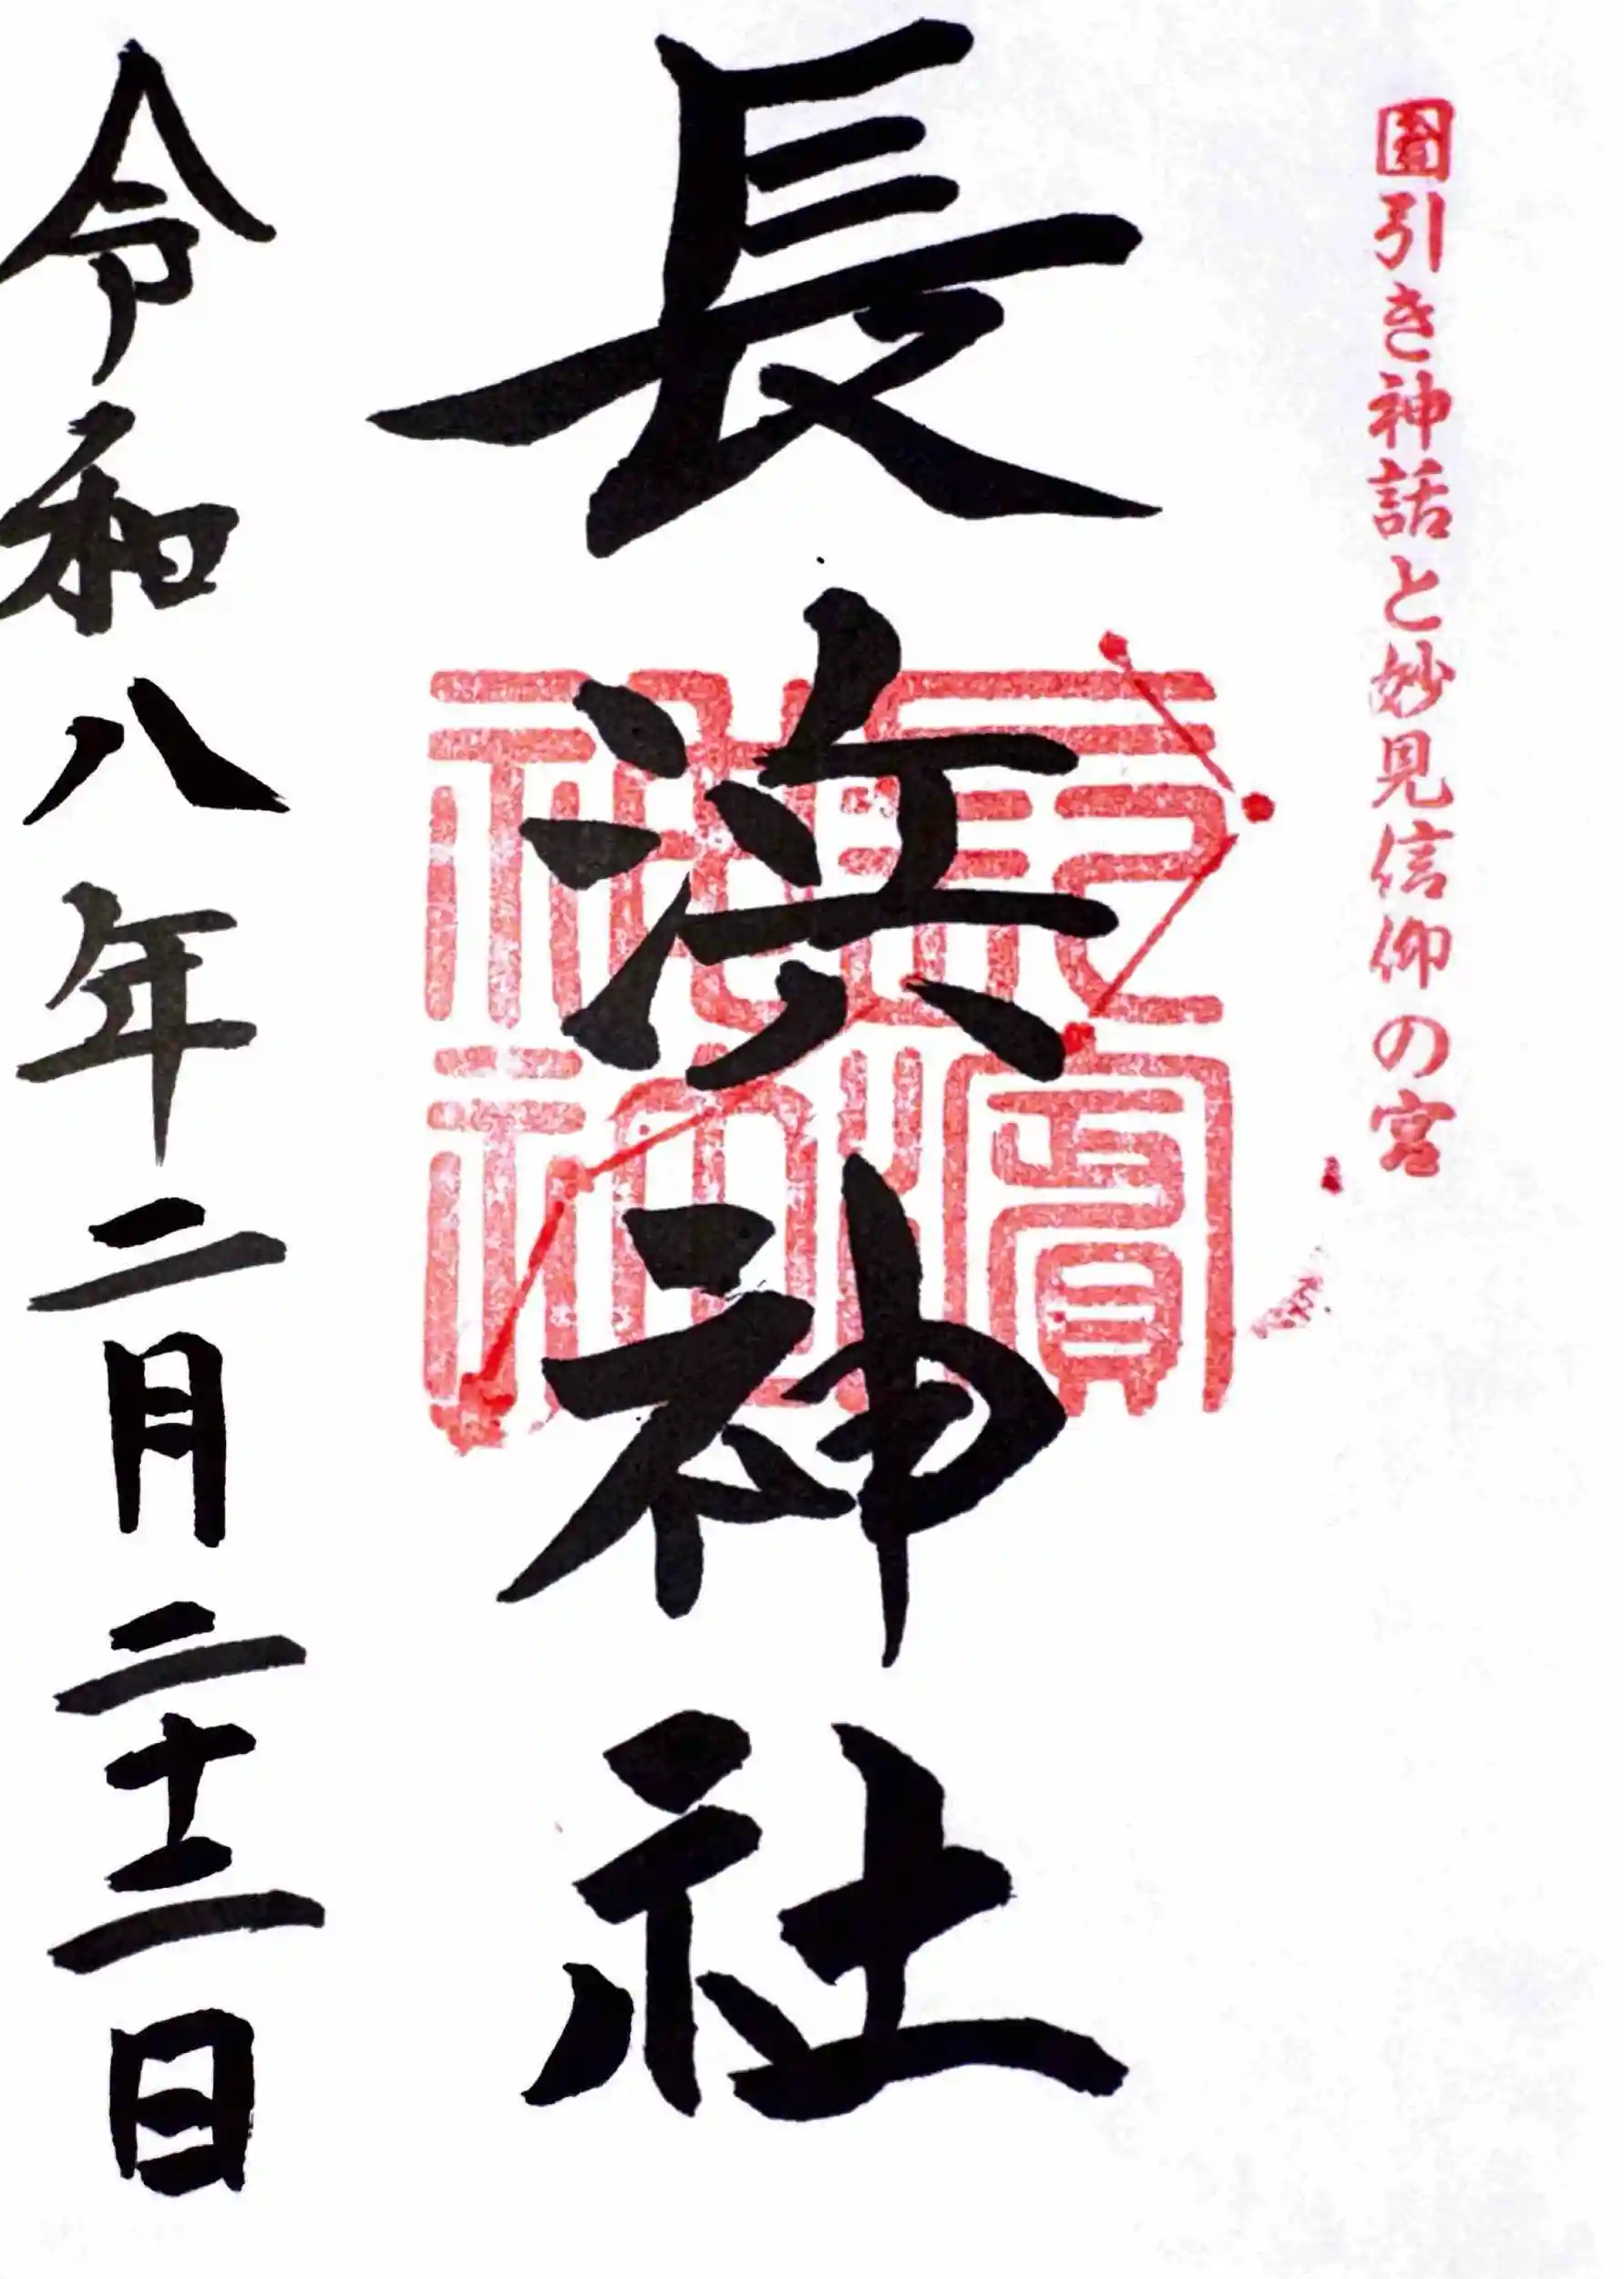 國引き神話と妙見信仰の宮
長浜神社
令和八年二月二十二日